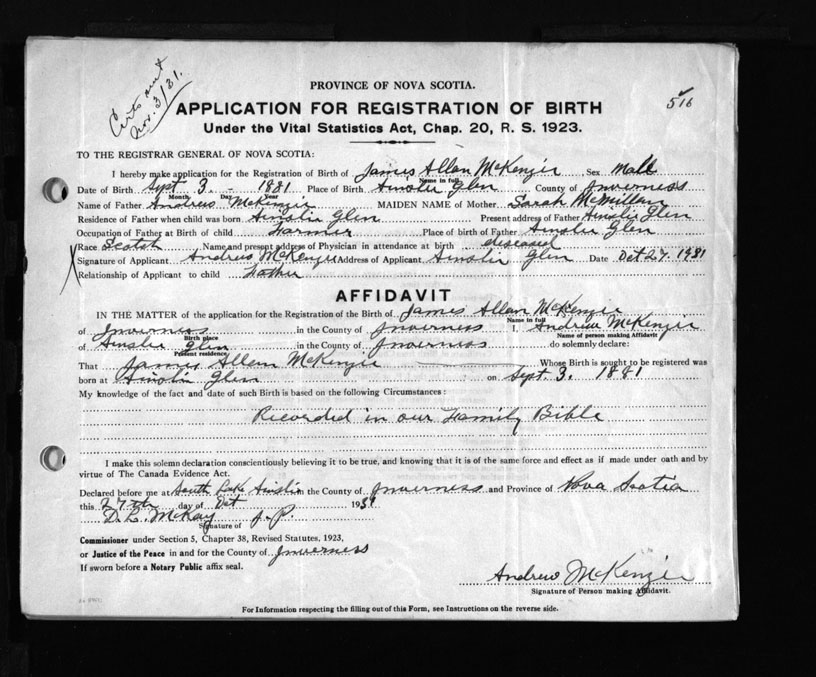 Certs sent
Nov. 3/31.
PROVINCE OF NOVA SCOTIA.
516
APPLICATION FOR REGISTRATION OF BIRTH
Under the Vital Statistics Act, Chap. 20, R. S. 1923.
TO THE REGISTRAR GENERAL OF NOVA SCOTIA:
I hereby make application for the Registration of Birth of James Allan McKenzie Sex Male
Name in full
Date of Birth Sept 3. - 1881 Place of Birth Ainslie Glen County of Inverness
Month Day Year
Name of Father Andrew McKenzie MAIDEN NAME of Mother Sarah McMillan
Residence of Father when child was born Ainslie Glen Present address of Father Ainslie Glen
Occupation of Father at Birth of child Farmer Place of birth of Father Ainslie Glen
Race Scotch Name and present address of Physician in attendance at birth deseased
Signature of Applicant Andrew McKenzie Address of Applicant Ainslie Glen Date Oct 27. 1931
Relationship of Applicant to child Father
AFFIDAVIT
IN THE MATTER of the application for the Registration of the Birth of James Allan McKenzie
Name in full
of Inverness in the County of Inverness I, Andrew McKenzie
Birth place Name of person making Affidavit
of Ainslie Glen in the County of Inverness do solemnly declare:
Present residency
That James Allan McKenzie Whose Birth is sought to be registered was
born at Ainslie Glen on Sept. 3. 1881
My knowledge of the fact and date of such Birth is based on the following Circumstances:
Recorded in our Family Bible
I make this solemn declaration conscientiously believing it to be true, and knowing that it is of the same force and effect as if made under oath and by
virtue of The Canada Evidence Act.
Declared before me at South Lake Ainslie in the County of Inverness and Province of Nova Scotia
this 27th day of Oct 1931
D. L. McKay J. P.
Signature of
Commissioner under Section 5, Chapter 38, Revised Statutes, 1923,
or Justice of the Peace in and for the County of Inverness
If sworn before a Notary Public affix seal.
Andrew McKenzie
Signature of Person making Affidavit.
For Information respecting the filling out of this Form, see Instructions on the reverse side.